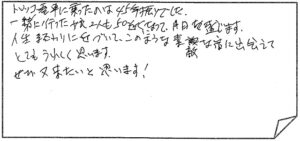 トロッコ電車に乗ったのは45年振りでした。
一緒に行った2人も50近くなって、月日を感じます。
人生終わりに近づいて、このような素敵な宿に出会えて
とてもうれしく思います。
ぜひ又来たいと思います!